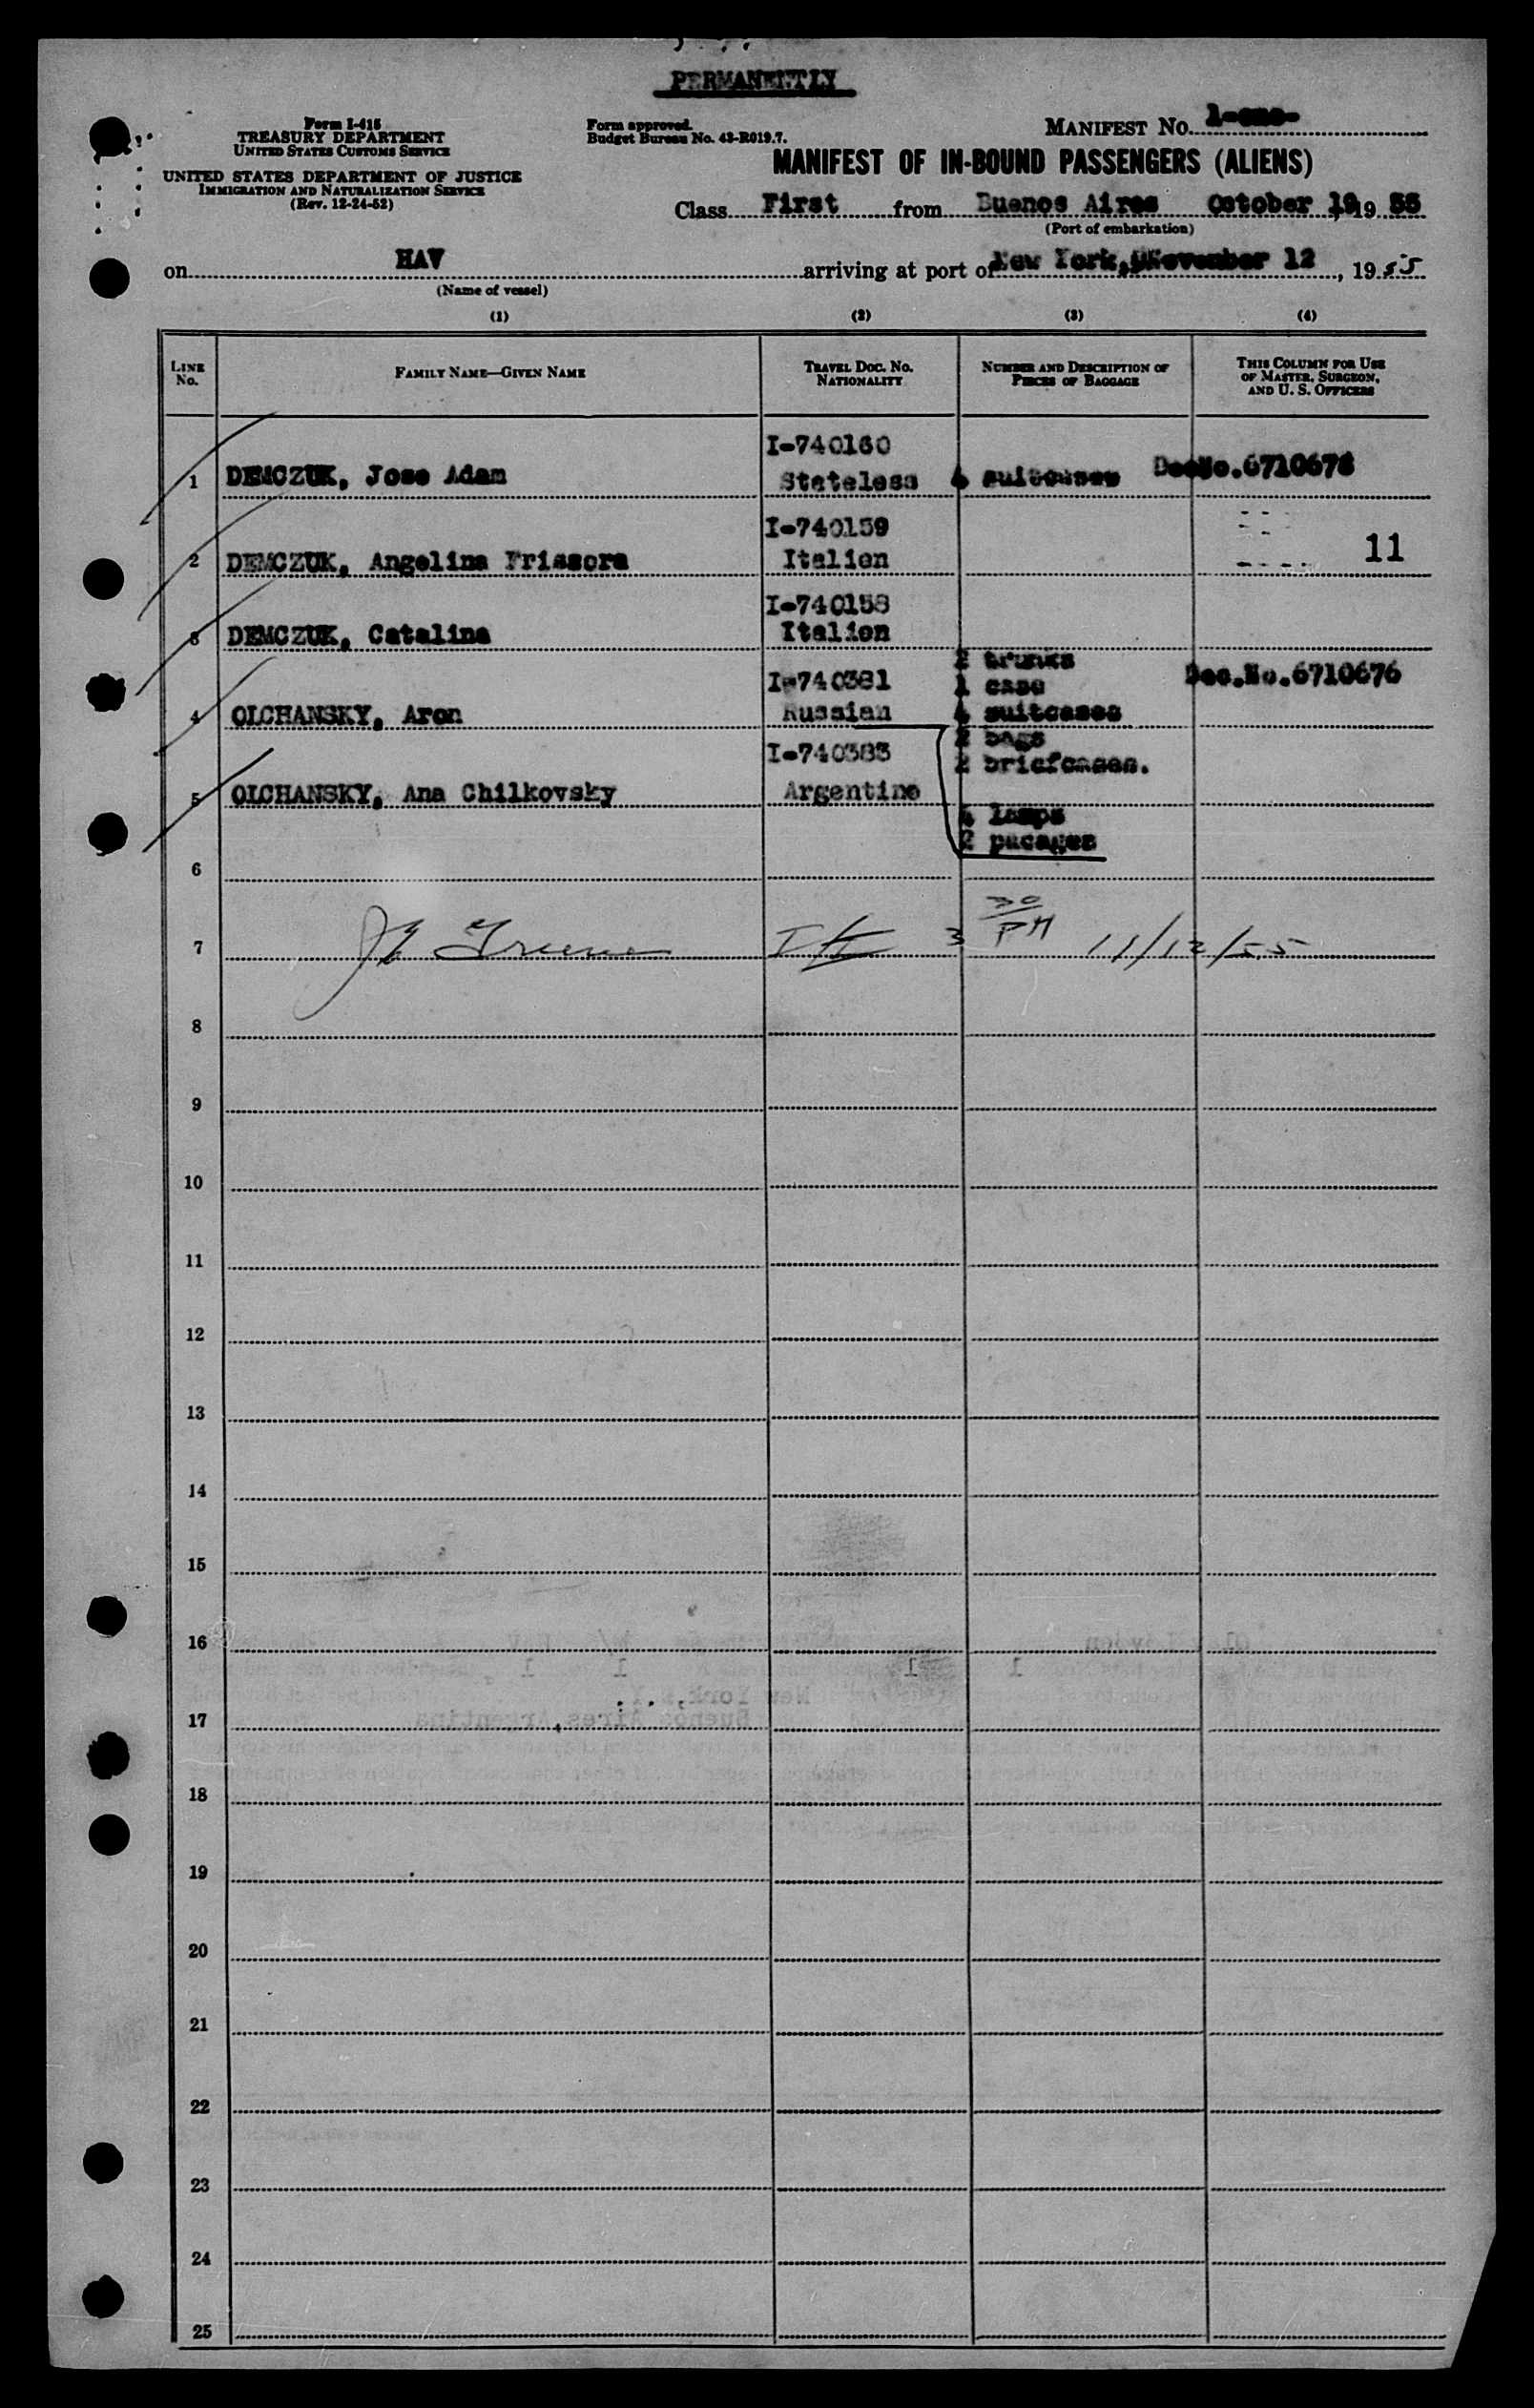 PERMANENTLY
Form I-415
TREASURY DEPARTMENT
UNITED STATES CUSTOMS SERVICE
UNITED STATES DEPARTMENT OF JUSTICE
IMMIGRATION AND NATURALIZATION SERVICE
(Rev. 12-24-52)
Form approved.
Budget Bureau No. 43-R019.7.
MANIFEST NO. 1-one-
MANIFEST OF IN-BOUND PASSENGERS (ALIENS)
Class First from Buenos Aires October 19, 19 55
(Port of embarkation)
on HAV arriving at port of New York, November 12, 19 55
(Name of vessel)
(1) (2) (3) (4)
LINE NO.
FAMILY NAME—GIVEN NAME
TRAVEL DOC. NO. NATIONALITY
NUMBER AND DESCRIPTION OF PIECES OF BAGGAGE
THIS COLUMN FOR USE OF MASTER, SURGEON, AND U. S. OFFICERS
I-740160
1 DEMCZUK, Jose Adam Stateless 4 suitcases Dec.No.6710678
I-740159
2 DEMCZUK, Angelina Frissora Italien 11
I-740158
3 DEMCZUK, Catalina Italien
2 trunks
I-740381 1 case Dec.No.6710676
4 OLCHANSKY, Aron Russian 4 suitcases
2 bags
I-740383 2 briefcases.
5 OLCHANSKY, Ana Chilkovsky Argentine
4 lamps
2 pacages
6
7 3 30/PM 11/12/55
8
9
10
11
12
13
14
15
16
17
18
19
20
21
22
23
24
25